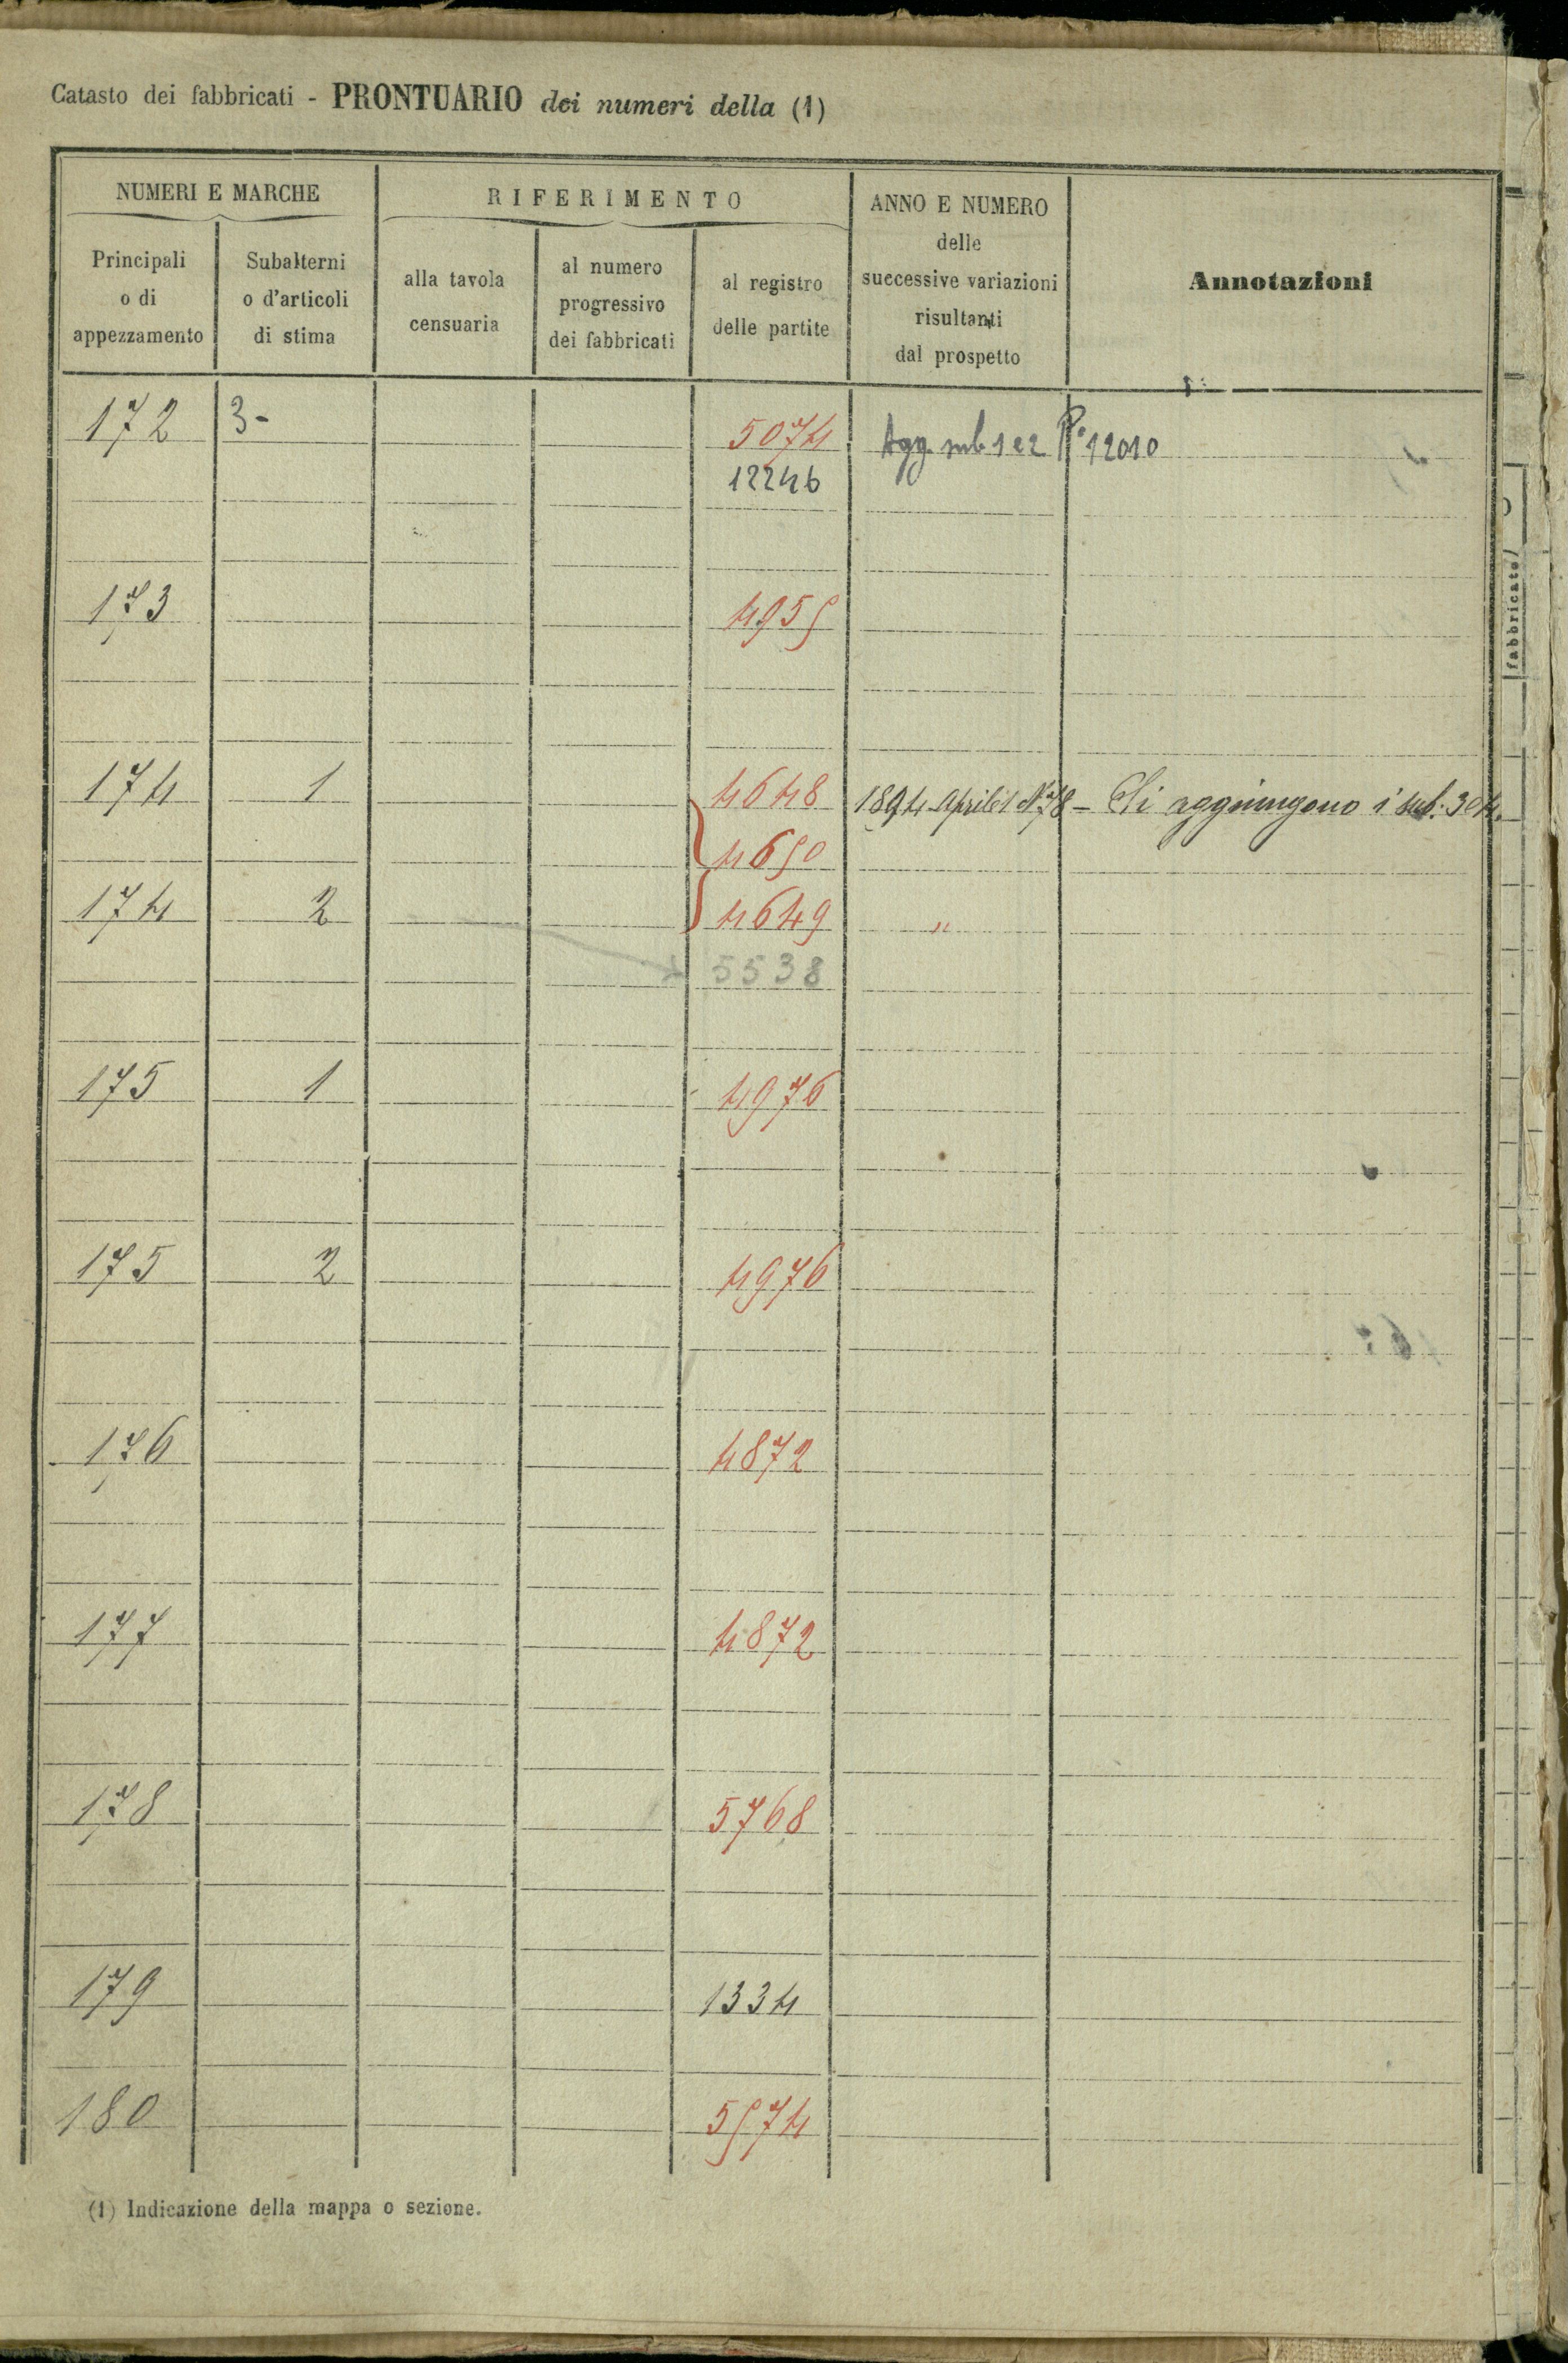 Catasto dei fabbricati - PRONTUARIO dei numeri della (1)
NUMERI E MARCHE
RIFERIMENTO
ANNO E NUMERO
delle
successive variazioni
risultanti
dal prospetto
Annotazioni
Principali
o di
appezzamento
Subalterni
o d'articoli
di stima
alla tavola
censuaria
al numero
progressivo
dei fabbricati
al registro
delle partite
172 3- 5074 Agg. sub 1 e 2 P. 12010
12246
173 4955
174 1 4648 1894 Aprile 1 N. 78 - Si aggiungono i sub. 3 e 4.
4650
174 2 4649 "
5538
175 1 4976
175 2 4976
176 4872
177 4872
178 5768
179 1334
180 5574
(1) Indicazione della mappa o sezione.
fabbricato)